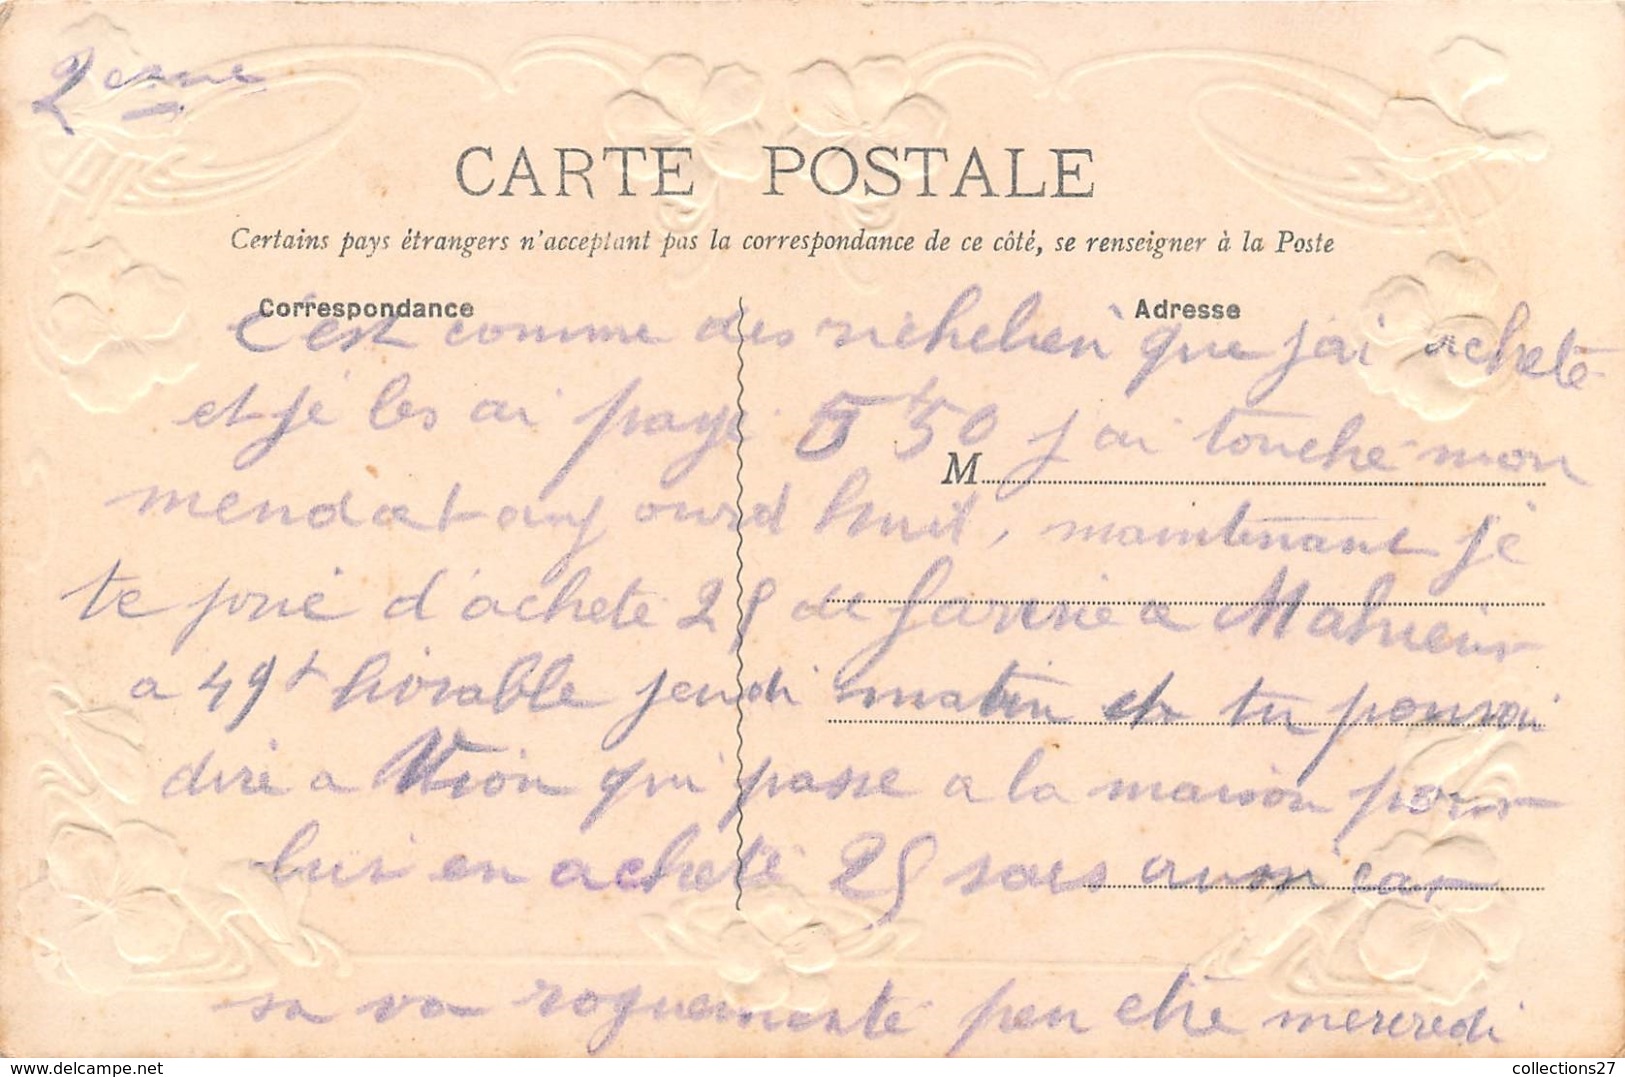 2eme
CARTE POSTALE
Certains pays étrangers n'acceptant pas la correspondance de ce côté, se renseigner à la Poste
Correspondance
Adresse
C'est comme des richelieu que j'ai acheté
et je les ai paye 5f50 j ai touche mon
mendat aujourd huit, maintenant je
M
te prie d'achete 25 de farine a Mahieux
a 49f livrable jeudi matin et tu pouvoi
dire a Union qui passe a la maison pour
lui en achete 25 sacs avon car
sa va roguemente peu etre mercredi
collections27